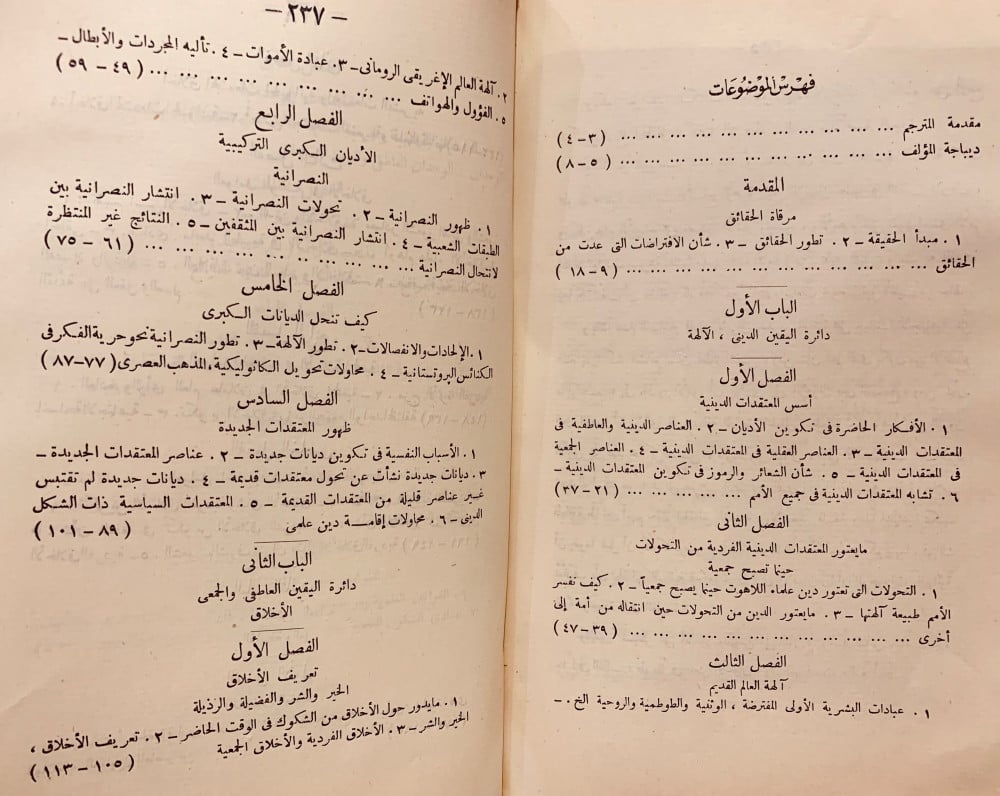 فهرس الموضوعات
مقدمة المترجم ... ... ... ... ... ... ... ... ... ... ... (٣-٤)
ديباجة المؤلف ... ... ... ... ... ... ... ... ... ... ... (٥-٨)
المقدمة
مرقاة الحقائق
١. مبدأ الحقيقة - ٢. تطور الحقائق - ٣. شأن الافتراضات التى عدت من
الحقائق ... ... ... ... ... ... ... ... ... ... ... (٩-١٨)
الباب الأول
دائرة اليقين الدينى ، الآلهة
الفصل الأول
أسس المعتقدات الدينية
١. الأفكار الحاضرة فى تكوين الأديان - ٢. العناصر الدينية والعاطفية فى
المعتقدات الدينية - ٣. العناصر العقلية فى المعتقدات الدينية - ٤. العناصر الجمعية
فى المعتقدات الدينية - ٥. شأن الشعائر والرموز فى تكوين المعتقدات الدينية -
٦. تشابه المعتقدات الدينية فى جميع الأمم ... ... ... ... ... (٢١-٣٧)
الفصل الثانى
مايعتور المعتقدات الدينية الفردية من التحولات
حينما تصبح جمعية
١. التحولات التى تعتور دين علماء اللاهوت حينما يصبح جمعياً - ٢. كيف تفسر
الأمم طبيعة آلهتها - ٣. مايعتور الدين من التحولات حين انتقاله من أمة إلى
أخرى ... ... ... ... ... ... ... ... ... ... ... ... (٣٩-٤٧)
الفصل الثالث
آلهة العالم القديم
١. عبادات البشرية الأولى المفترضة ، الوثنية والطوطمية والروحية الخ. -
- ٢٣٧ -
٢. آلهة العالم الإغريقى الرومانى - ٣. عبادة الأموات - ٤. تأليه المجردات والأبطال -
٥. الفؤول والهواتف ... ... ... ... ... ... ... ... ... (٤٩ - ٥٩)
الفصل الرابع
الأديان الكبرى التركيبية
النصرانية
١. ظهور النصرانية - ٢. تحولات النصرانية - ٣. انتشار النصرانية بين
الطبقات الشعبية - ٤. انتشار النصرانية بين المثقفين - ٥. النتائج غير المنتظرة
لانتحال النصرانية ... ... ... ... ... ... ... ... ... ... (٦١ - ٧٥)
الفصل الخامس
كيف تنحل الديانات الكبرى
١. الإلحادات والانفصالات - ٢. تطور الآلهة - ٣. تطور النصرانية نحو حرية الفكر فى
الكنائس البروتستانية - ٤. محاولات تحويل الكاثوليكية، المذهب العصرى (٧٧-٨٧)
الفصل السادس
ظهور المعتقدات الجديدة
١. الأسباب النفسية فى تكوين ديانات جديدة - ٢. عناصر المعتقدات الجديدة -
٣. ديانات جديدة نشأت عن تحول معتقدات قديمة - ٤. ديانات جديدة لم تقتبس
غير عناصر قليلة من المعتقدات القديمة - ٥. المعتقدات السياسية ذات الشكل
الدينى - ٦. محاولات إقامة دين علمى (٨٩ - ١٠١)
الباب الثانى
دائرة اليقين العاطفى والجمعى
الأخلاق
الفصل الأول
تعريف الأخلاق
الخير والشر والفضيلة والرذيلة
١. مايدور حول الأخلاق من الشكوك فى الوقت الحاضر - ٢. تعريف الأخلاق ،
الخير والشر - ٣. الأخلاق الفردية والأخلاق الجمعية (١٠٥ - ١١٣)